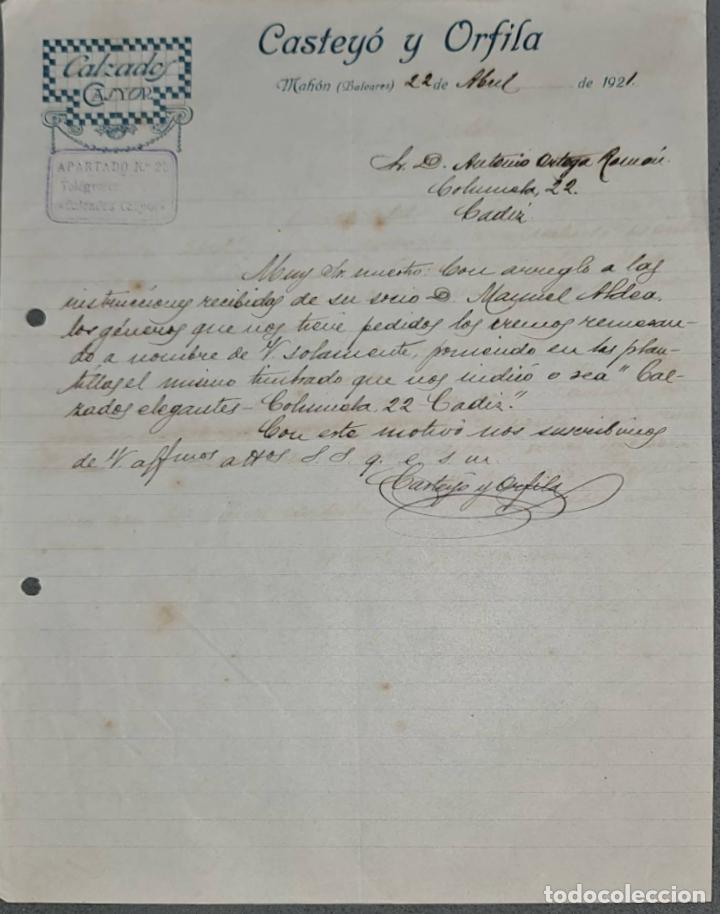 Casteyó y Orfila
Calzados
CASYOR
Mahón (Baleares) 22 de Abril de 1921.
APARTADO N.º 25
Telegramas
«Calzados Casyor»
Sr. D. Antonio Ortega Román.
Columela, 22.
Cadiz
Muy Sr. nuestro: Con arreglo a las
instrucciones recibidas de su socio D. Manuel Aldea,
los géneros que nos tiene pedidos los iremos remesan-
do a nombre de V. solamente, poniendo en las plan-
tillas el mismo timbrado que nos indicó o sea "Cal-
zados elegantes - Columela 22 - Cadiz".
Con este motivo nos suscribimos
de V. affmos attos S. S. q. e. s. m.
Casteyó y Orfila
todocoleccion